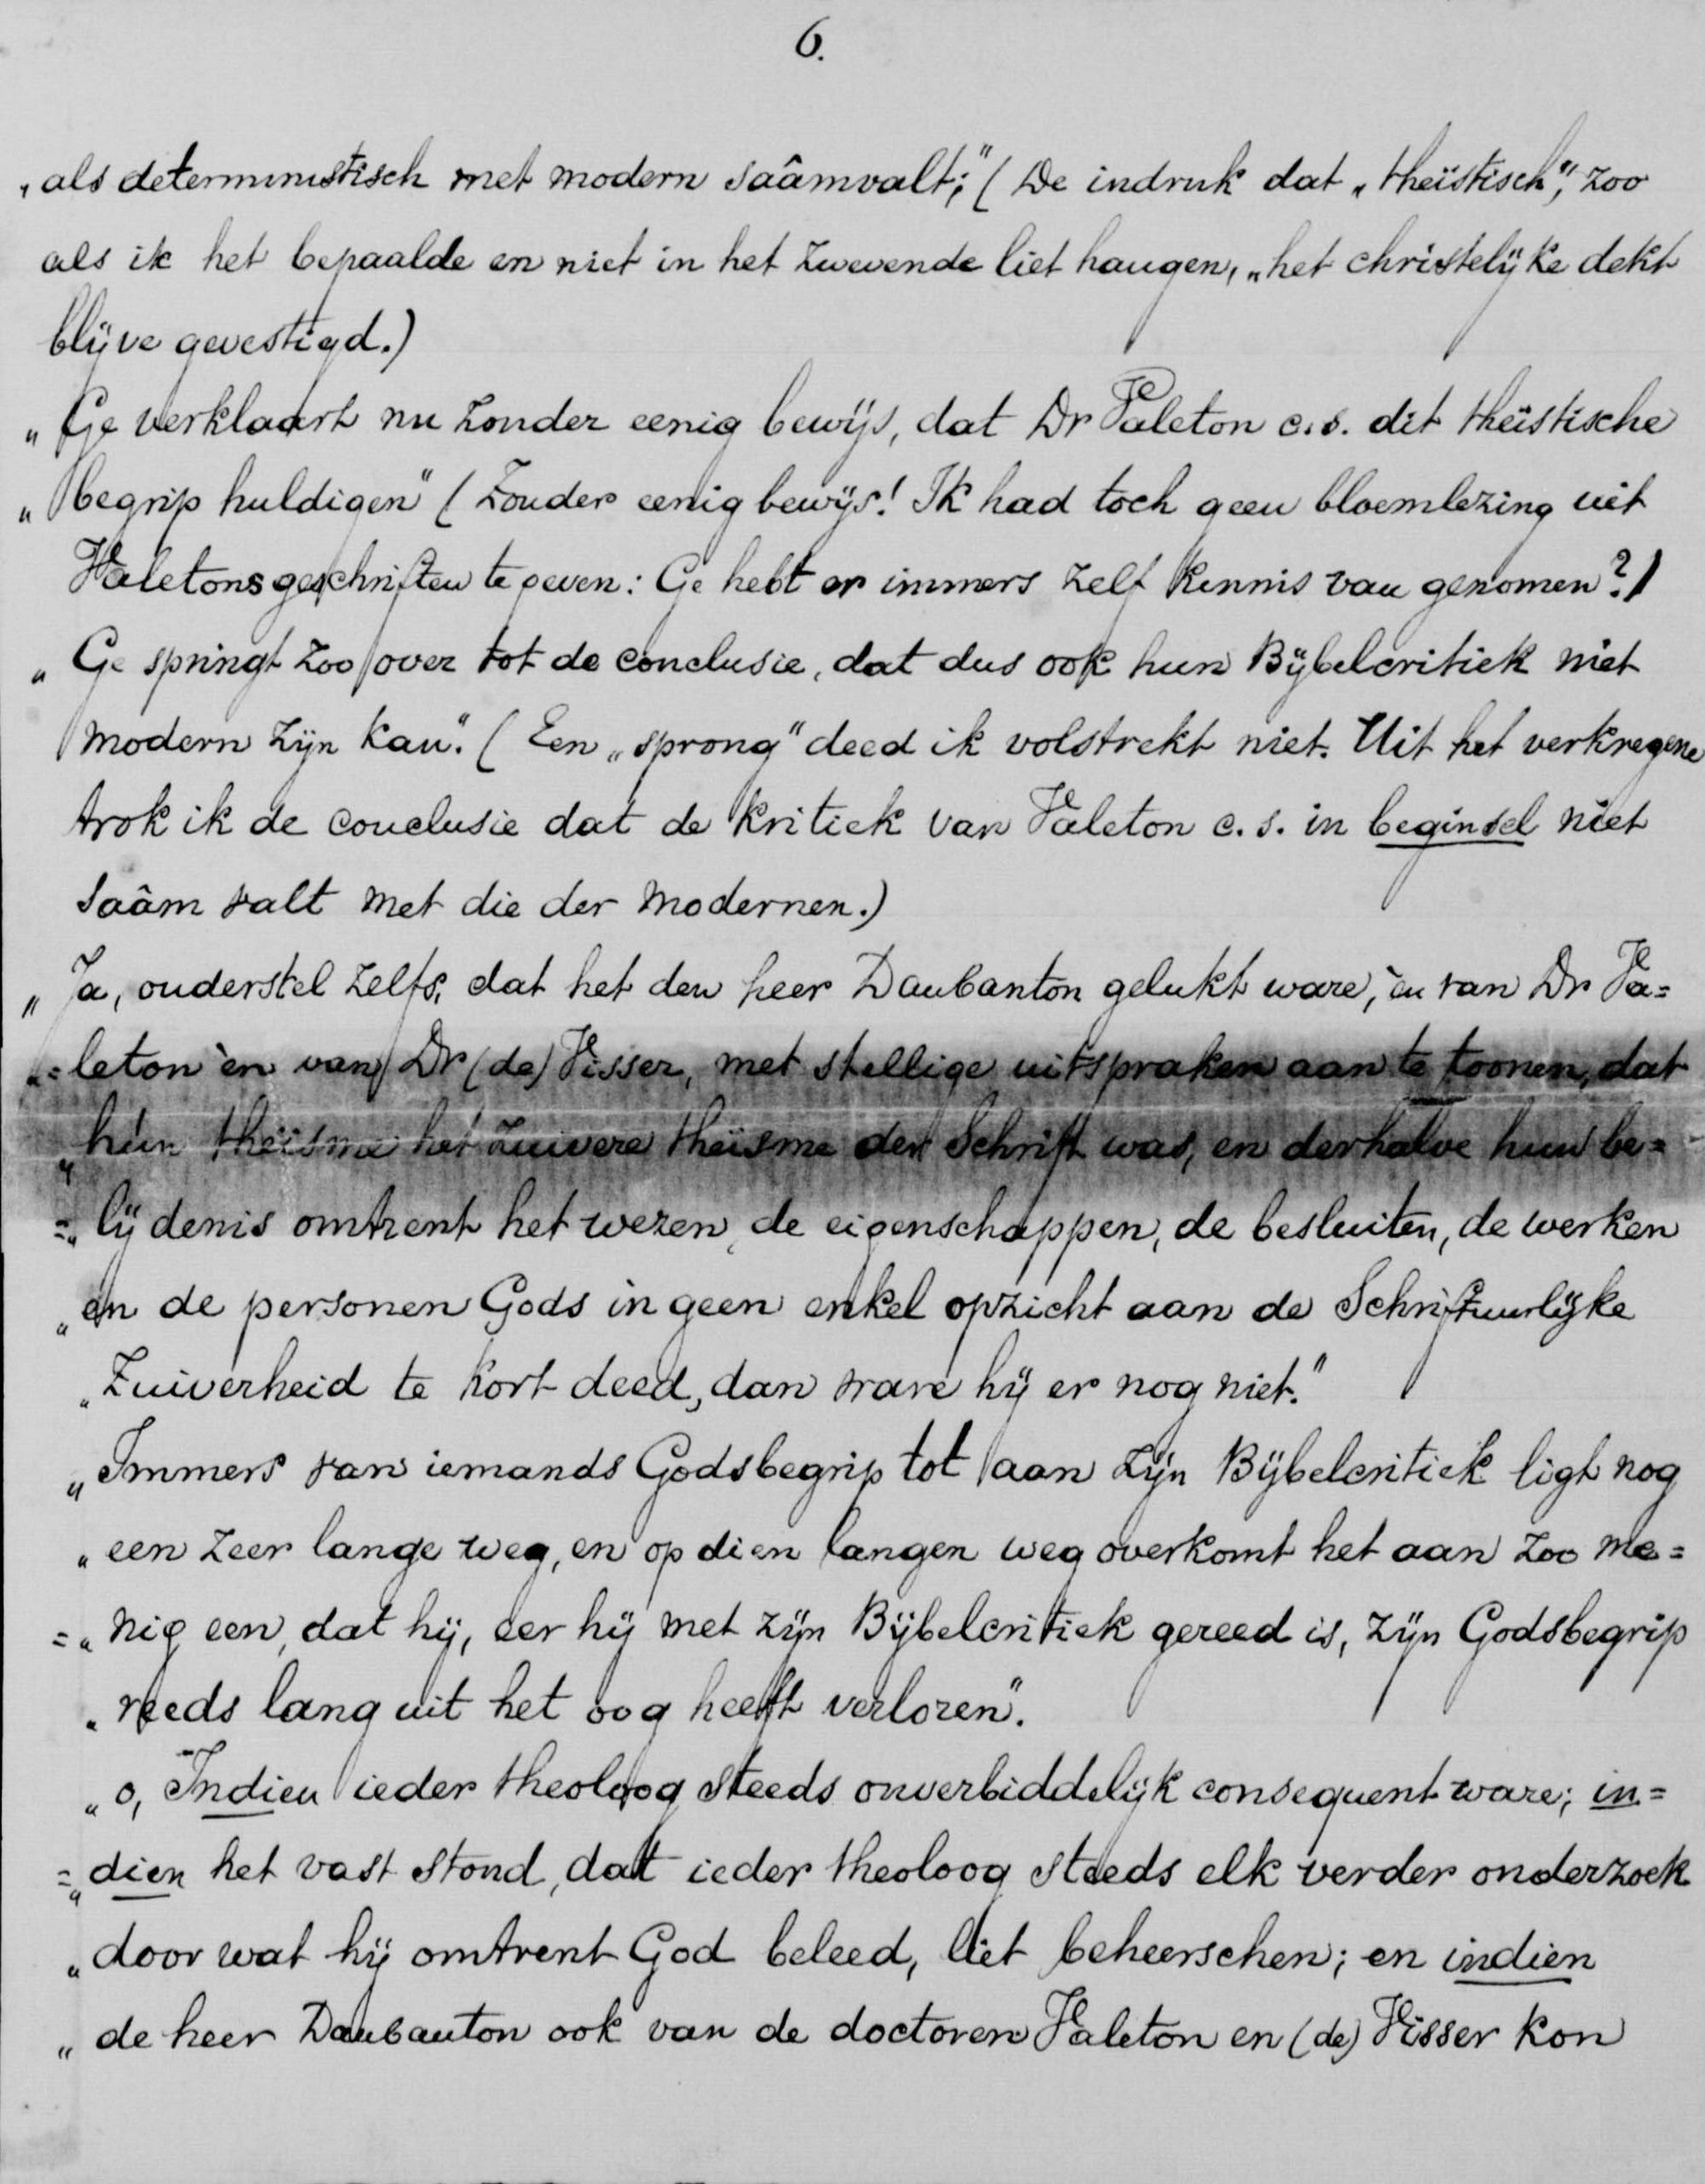 6.
„als deterministisch met modern saâmvalt;" (De indruk dat „theïstisch", zoo
als ik het bepaalde en niet in het zwevende liet hangen, „het christelijke dekt
blijve gevestigd.)
„Ge verklaart nu zonder eenig bewijs, dat Dr Valeton c.s. dit theïstische
„begrip huldigen" (Zonder eenig bewijs! Ik had toch geen bloemlezing uit
Valetons geschriften te geven: Ge hebt er immers zelf kennis van genomen?)
„Ge springt zoo over tot de conclusie, dat dus ook hun Bijbelcritiek niet
modern zijn kan." (Een „sprong" deed ik volstrekt niet. Uit het verkregene
trok ik de conclusie dat de kritiek van Valeton c.s. in beginsel niet
saâm valt met die der modernen.)
„Ja, onderstel zelfs, dat het den heer Daubanton gelukt ware, èn van Dr Va=
„=leton èn van Dr (de) Visser, met stellige uitspraken aan te toonen, dat
„hún theïsme het zuivere theïsme der Schrift was, en derhalve hun be=
=„lijdenis omtrent het wezen, de eigenschappen, de besluiten, de werken
„en de personen Gods in geen enkel opzicht aan de Schriftuurlijke
„Zuiverheid te kort deed, dan ware hij er nog niet."
„Immers van iemands Godsbegrip tot aan zijn Bijbelcritiek ligt nog
„een zeer lange weg, en op dien langen weg overkomt het aan zoo me=
=„nig een, dat hij, eer hij met zijn Bijbelcritiek gereed is, zijn Godsbegrip
„reeds lang uit het oog heeft verloren".
„o, Indien ieder theoloog steeds onverbiddelijk consequent ware; in=
=„dien het vast stond, dat ieder theoloog steeds elk verder onderzoek
„door wat hij omtrent God beleed, liet beheerschen; en indien
„de heer Daubanton ook van de doctoren Valeton en (de) Visser kon